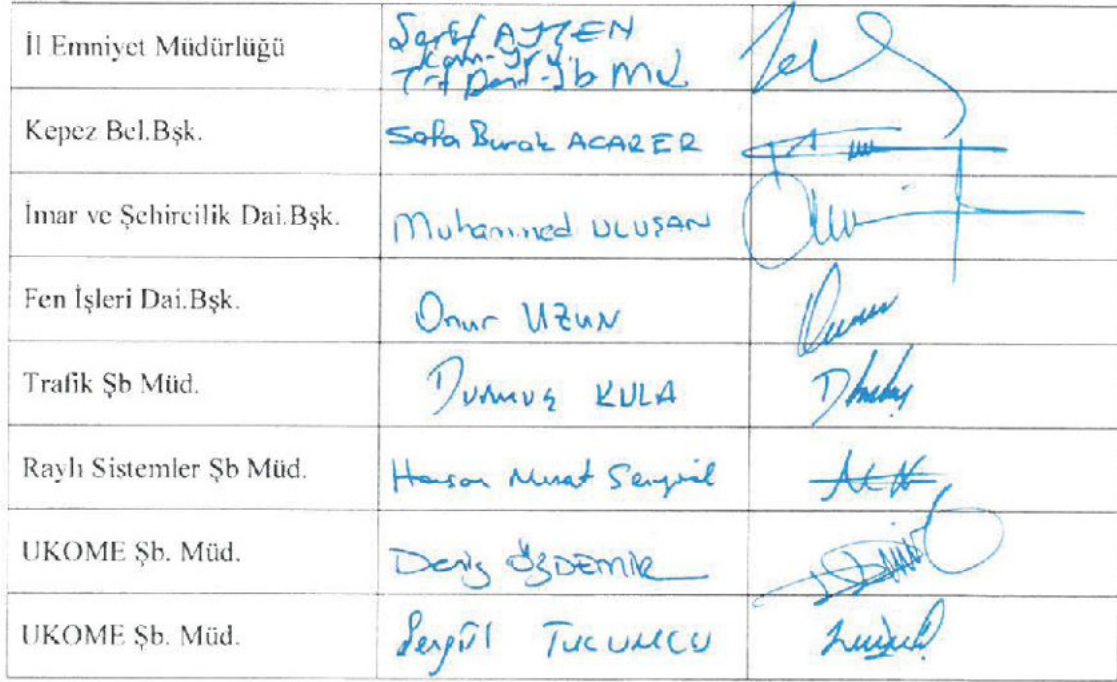 İl Emniyet Müdürlüğü
Şerif AYZEN
Şb Mü.
Kepez Bel.Bşk.
Safa Burak ACARER
İmar ve Şehircilik Dai.Bşk.
Muhammed ULUŞAN
Fen İşleri Dai.Bşk.
Onur UZUN
Trafik Şb Müd.
Durmuş KULA
Raylı Sistemler Şb Müd.
Hasan Murat
UKOME Şb. Müd.
Deniz ÖZDEMİR
UKOME Şb. Müd.